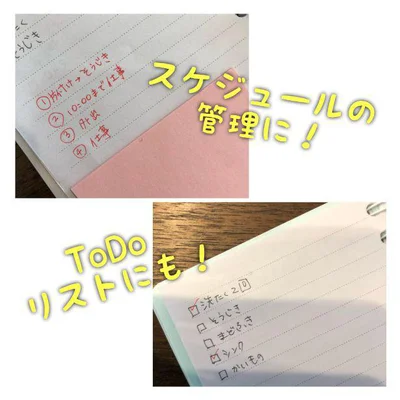 たく
そうじき
①片付け→そうじき
②10:00まで仕事
③外出
④仕事
スケジュールの
管理に!
ToDo
リストにも!
洗たく2回
そうじき
まどふき
シンク
かいもの